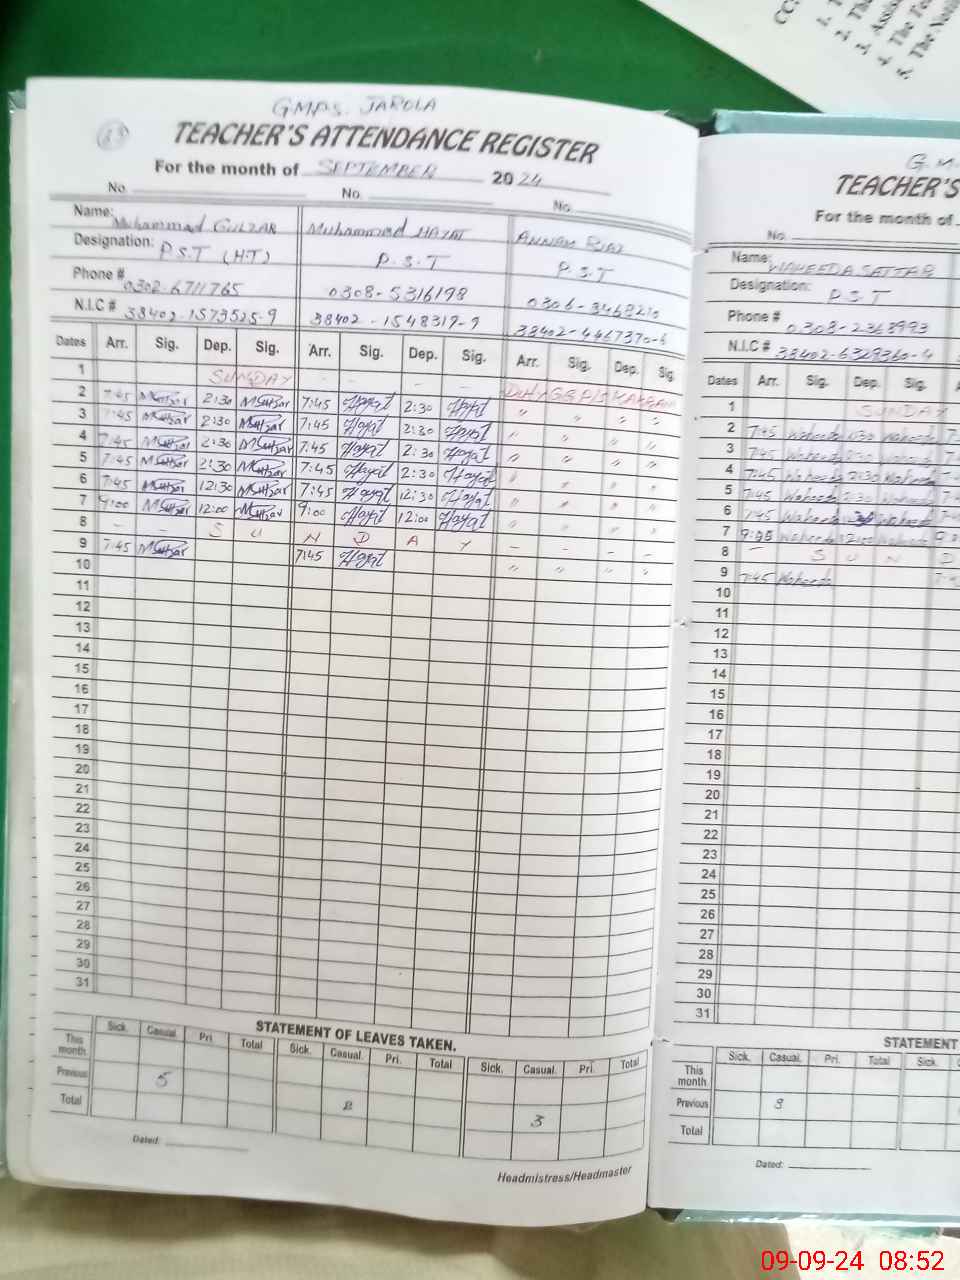 CC:
1. T
2. The
3. Assis
4. The Te
5. The Noti
GMPS. JAROLA
TEACHER'S ATTENDANCE REGISTER
For the month of SEPTEMBER 2024
No. No. No.
Name: Muhammad GULZAR Muhammad HAYAT ANNAM RIAZ
Designation: P.S.T (H.T) P.S.T P.S.T
Phone # 0302-6711765 0308-5316198 0306-3468210
N.I.C # 38402-1573525-9 38402-1548319-9 38402-4467370-6
Dates Arr. Sig. Dep. Sig. Arr. Sig. Dep. Sig. Arr. Sig. Dep. Sig.
1 SUNDAY - - - -
2 7:45 2:30 7:45 Hayat 2:30 Hayat Duty
3 7:45 2:30 7:45 Hayat 2:30 Hayat " " " "
4 7:45 2:30 7:45 Hayat 2:30 Hayat " " " "
5 7:45 2:30 7:45 Hayat 2:30 Hayat " " " "
6 7:45 12:30 7:45 Hayat 12:30 Hayat " " " "
7 9:00 12:00 9:00 Hayat 12:00 Hayat " " " "
8 - - S U N D A Y - - - -
9 7:45 7:45 Hayat " " " "
10
11
12
13
14
15
16
17
18
19
20
21
22
23
24
25
26
27
28
29
30
31
STATEMENT OF LEAVES TAKEN.
Sick. Casual. Pri. Total Sick. Casual. Pri. Total Sick. Casual. Pri. Total
This month
Previous 5 2 3
Total
Dated:
Headmistress/Headmaster
G.M
TEACHER'S
For the month of
No.
Name: WAHEEDA SATTAR
Designation: P.S.T
Phone # 0308-2363993
N.I.C # 38402-6329360-4
Dates Arr. Sig. Dep. Sig. A
1 SUNDAY
2 7:45 Waheeda 2:30 Waheeda
3 7:45 Waheeda 2:30 Waheeda
4 7:45 Waheeda 2:30 Waheeda
5 7:45 Waheeda 2:30 Waheeda
6 7:45 Waheeda Waheeda
7 Waheeda 12:00 Waheeda
8 - S U N D
9 7:45 Waheeda
10
11
12
13
14
15
16
17
18
19
20
21
22
23
24
25
26
27
28
29
30
31
STATEMENT
Sick. Casual. Pri. Total Sick.
This month
Previous 9
Total
Dated:
09-09-24 08:52